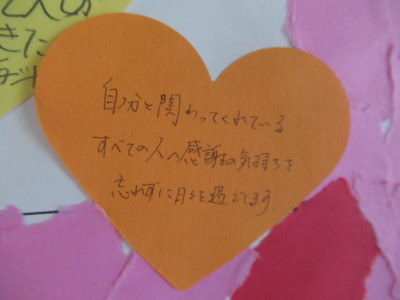 きた
自分と関わってくれている
すべての人へ感謝の気持ちを
忘れずに日々を過ごしてます。